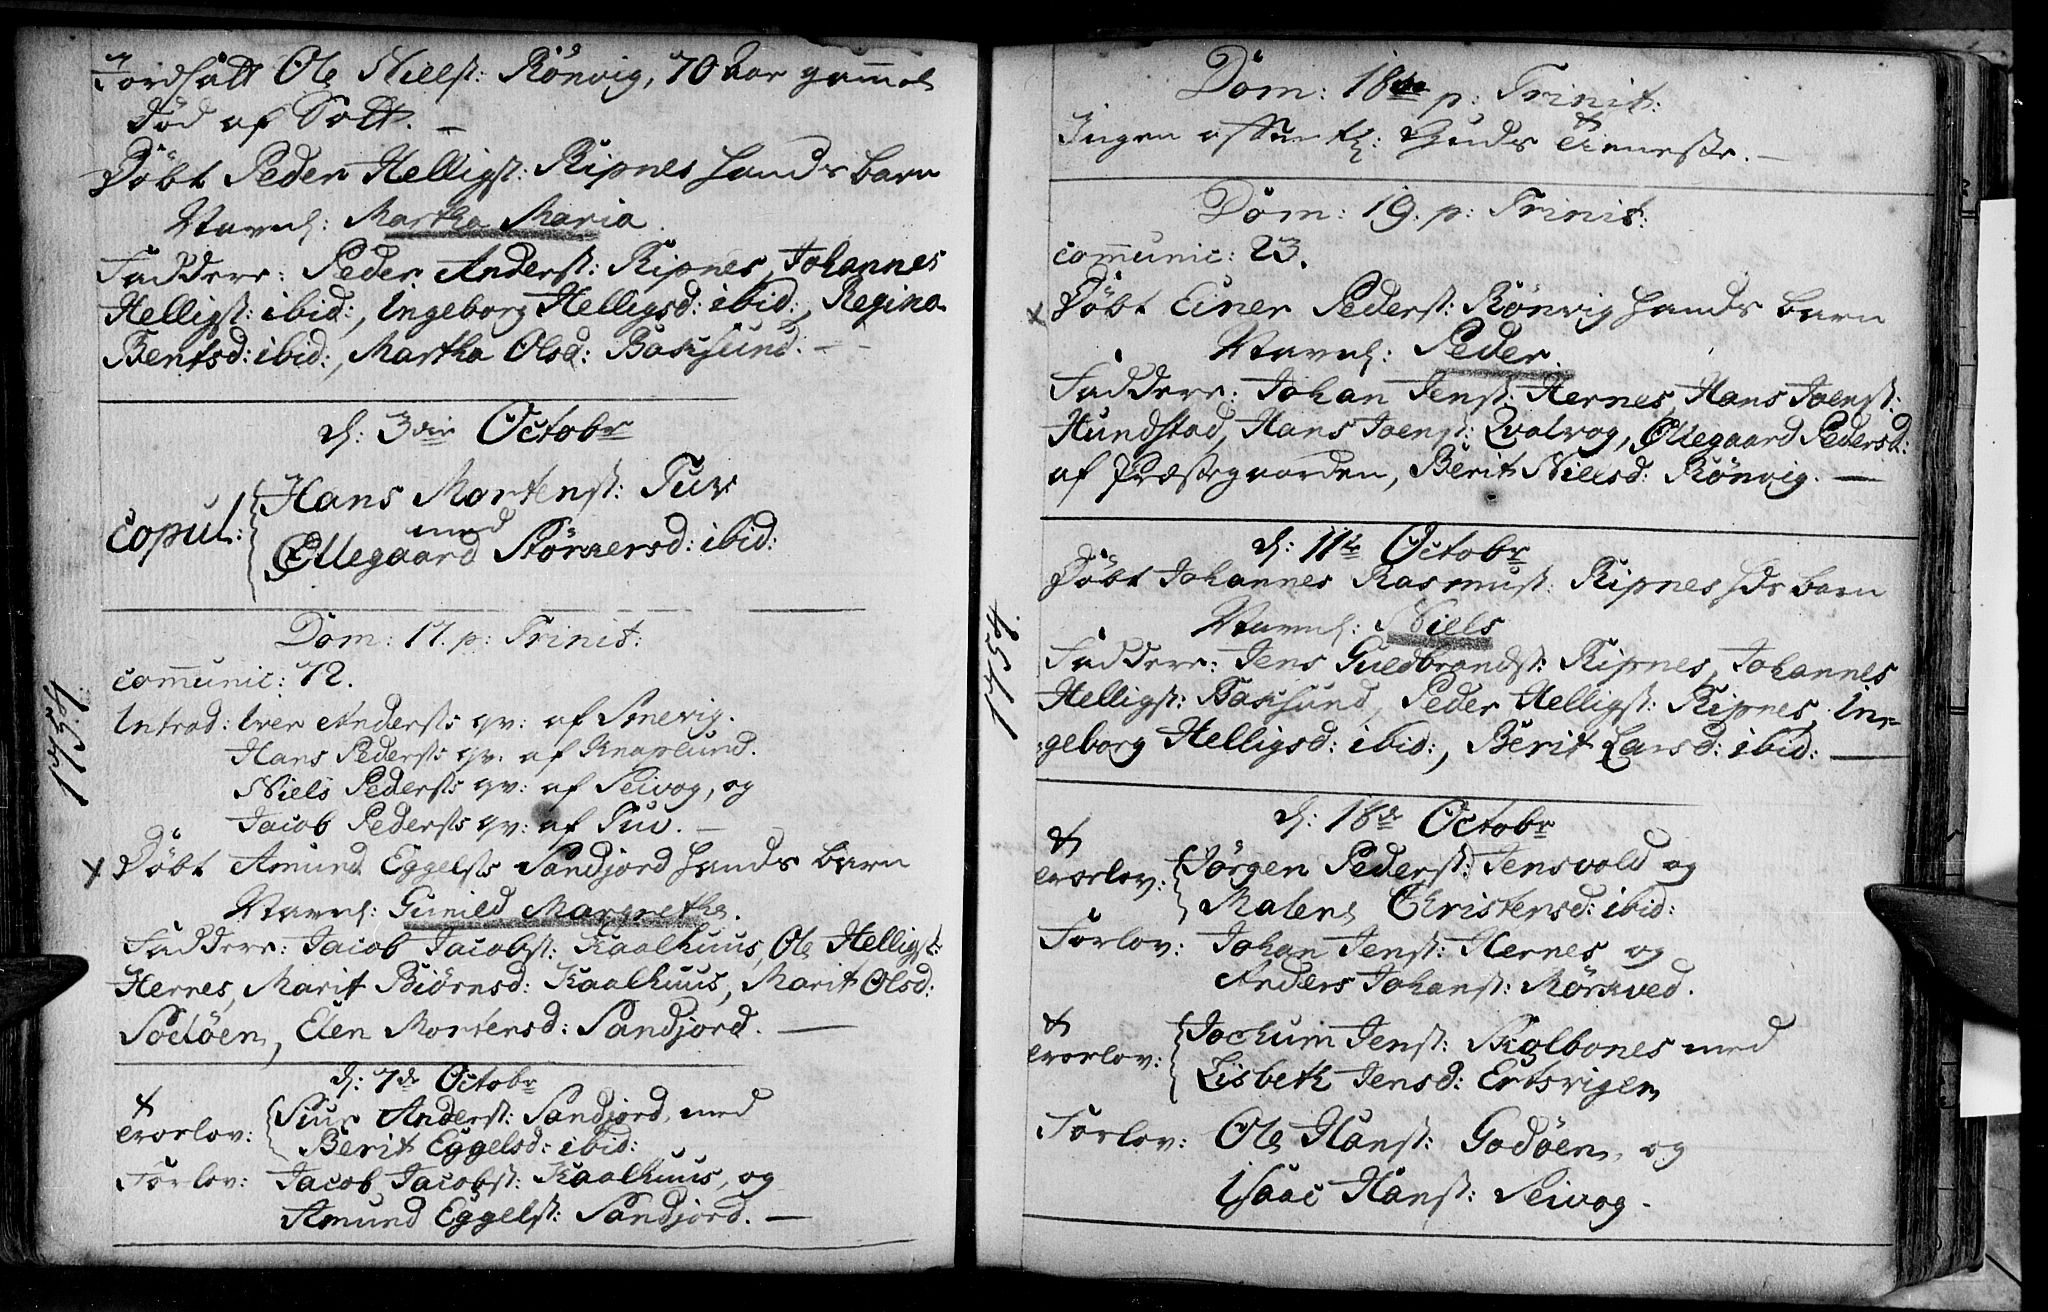 Jordsatt Ole Nielss: Rönvig, 70 aar gammel
död af Sott. —
Döbt Peder Helligss: Ripnes hands barn
Navnl: Martha Maria.
Faddere: Peder Anderss: Ripnes, Johannes
Helligss: ibid:, Ingeborg Helligsd: ibid:, Regina
Bentsd: ibid:, Martha Olsd: Baksund. —
d: 3die Octobr
copul: Hans Mortenss: Tuv
med
Ellegaard Störkersd: ibid:
Dom: 17. p: Trinit:
communic: 72.
Introd: Iver Anderss qv: af Smevig.
Hans Pederss qv: af Knaplund.
Niels Pederss qv: af Seivog, og
Jacob Pederss qv: af Tuv. —
1754.
x Döbt Amund Eggelss Sandjord hands barn
Navnl: Gunild Margretha.
Faddere: Jacob Jacobss: Kaalhuus, Ole Helligss:
Hernes, Marit Biörnsd: Kaalhuus, Marit Olsd:
Godöen, Elen Mortensd: Sandjord. —
d: 7de Octobr
+
trorlov: Siur Anderss: Sandjord, med
Berit Eggelsd: ibid:
Forlov: Jacob Jacobss: Kaalhuus, og
Amund Eggelss: Sandjord. —
Dom: 18de p: Trinit:
Ingen offentl: Guds tieneste. —
Dom: 19. p: Trinit:
communic: 23.
x Döbt Einer Pederss: Rönvig hands barn
Navnl: Peder.
Faddere: Johan Jenss: Hernes, Hans Joenss:
Hundstad, Hans Joenss: Qvalvog, Ellegaard Pedersd:
af Præstegaarden, Berit Nielsd: Rönvig. —
d: 11te Octobr
Döbt Johannes Rasmuss: Ripnes hds barn
Navnl: Niels
1754.
Faddere: Jens Guldbrandss: Ripnes, Johannes
Helligss: Baksund, Peder Helligss: Ripnes, In-
geborg Helligsd: ibid:, Berit Larsd: ibid: —
d: 18de Octobr
+
trorlov: Jörgen Pederss: Jensvold og
Malene Christensd: ibid:
Forlov: Johan Jenss: Hernes og
Anders Johanss: Mörkved.
+
trorlov: Jochum Jenss: Skolbones med
Lisbeth Jensd: Ertsvigen
Forlov: Ole Hanss: Godöen, og
Isaac Hanss: Seivog.